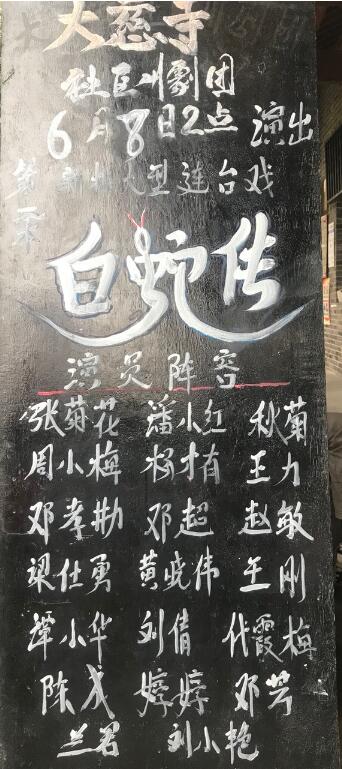 大慈寺
社区川劇团
6月8日2点 演出
第一本
新排大型连台戏
白蛇传
演员阵容
张菊花 潘小红 秋菊
周小梅 杨才有 王力
邓孝勘 邓超 赵敏
梁仕勇 黄晓伟 王刚
谭小华 刘倩 代霞梅
陈戈 婷婷 邓芳
兰君 刘小艳